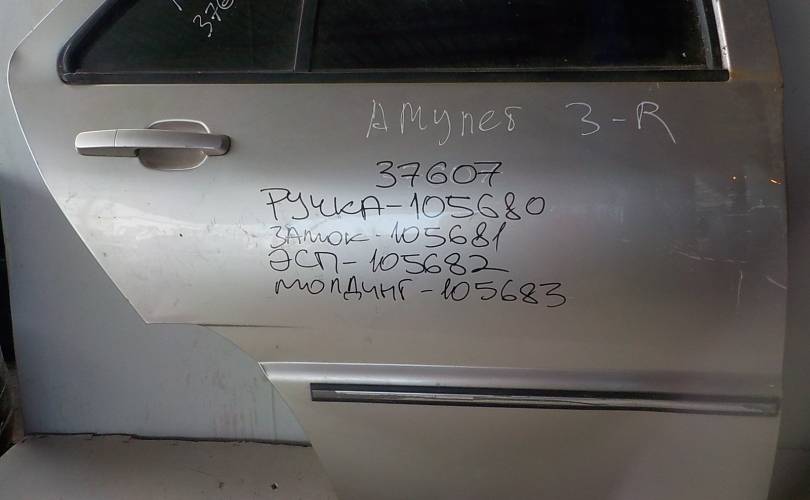 Амулет 3-R
37607
РУЧКА-105680
ЗАМОК-105681
ЭСП-105682
МОЛДИНГ-105683